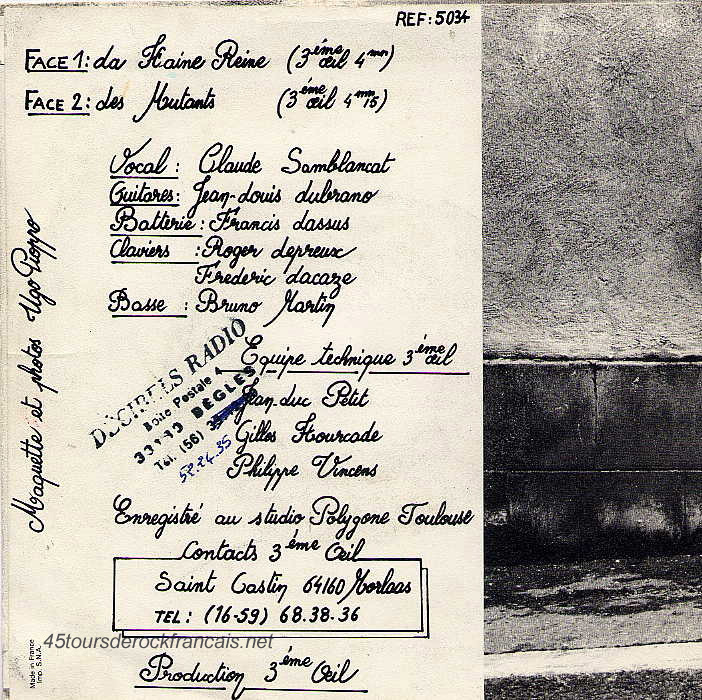 REF: 5034
FACE 1: La Haine Reine (3ème œil 4mn)
FACE 2: Les Mutants (3ème œil 4mn15)
Vocal : Claude Samblancat
Guitares: Jean-Louis Lubrano
Batterie : Francis Lassus
Claviers : Roger Lepreux
Frederic Lacaze
Basse : Bruno Martin
Maquette et photos Ugo Pioppo
DÉCIBELS RADIO
Boite Postale 4
BÈGLES
Tél. (56)
52.24.35
Equipe technique 3ème œil
Jean-Luc Petit
Gilles Hourcade
Philippe Vincens
Enregistré au studio Polygone Toulouse
Contacts 3ème Œil
Saint Castin 64160 Morlaas
TEL: (16-59) 68.38.36
45toursderockfrancais.net
Made in France
Imp. S.N.A.
Production 3ème Œil